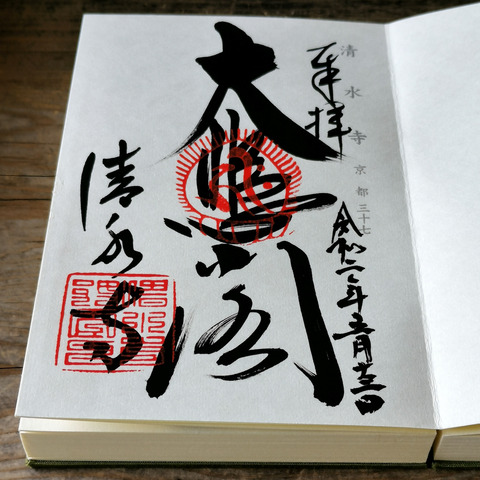 清水寺 京都三十七
奉拝
令和六年五月十三日
大悲閣
清水寺